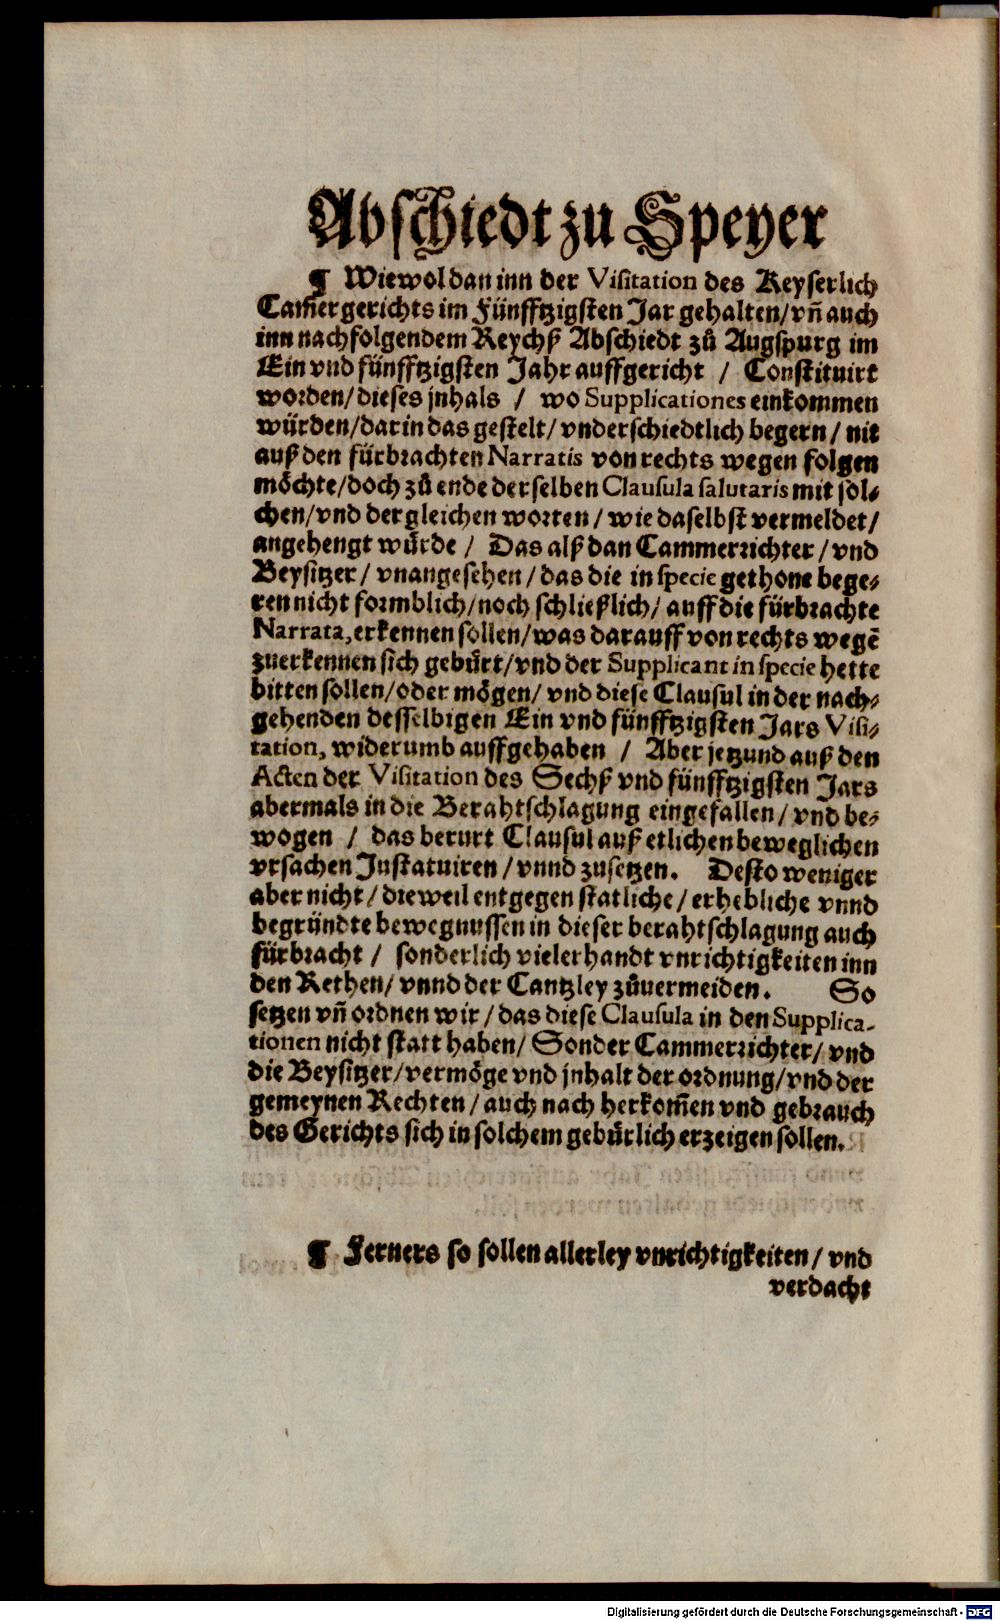 Abschiedt zu Speyer
¶ Wiewol dan inn der Visitation des Keyserlich
Cam̃ergerichts im Fünfftzigsten Jar gehalten/ vñ auch
inn nachfolgendem Reychß Abschiedt zů Augspurg im
Ein vnd fünfftzigsten Jahr auffgericht / Constituirt
worden/ dieses jnhals / wo Supplicationes einkommen
würden/ darin das gestelt/ vnderschiedtlich begern/ nit
auß den fürbrachten Narratis von rechts wegen folgen
möchte/ doch zů ende derselben Clausula salutaris mit sol-
chen/ vnd dergleichen worten/ wie daselbst vermeldet/
angehengt würde / Das alß dan Cammerrichter/ vnd
Beysitzer/ vnangesehen/ das die in specie gethone bege-
ren nicht formblich/ noch schließlich/ auff die fürbrachte
Narrata, erkennen sollen/ was darauff von rechts wegẽ
zuerkennen sich gebürt/ vnd der Supplicant in specie hette
bitten sollen/ oder mögen/ vnd diese Clausul in der nach-
gehenden desselbigen Ein vnd fünfftzigsten Jars Visi-
tation, widerumb auffgehaben / Aber jetzund auß den
Acten der Visitation des Sechß vnd fünfftzigsten Jars
abermals in die Berahtschlagung eingefallen/ vnd be-
wogen / das berurt Clausul auß etlichen beweglichen
vrsachen Justatuiren/ vnnd zusetzen. Desto weniger
aber nicht/ dieweil entgegen statliche/ erhebliche vnnd
begründte bewegnussen in dieser berahtschlagung auch
fürbracht / sonderlich vielerhandt vnrichtigkeiten inn
den Rethen/ vnnd der Cantzley zůuermeiden. So
setzen vñ ordnen wir/ das diese Clausula in den Supplica-
tionen nicht statt haben/ Sonder Cammerrichter/ vnd
die Beysitzer/ vermöge vnd jnhalt der ordnung/ vnd der
gemeynen Rechten/ auch nach herkom̃en vnd gebrauch
des Gerichts sich in solchem gebürlich erzeigen sollen.
¶ Ferners so sollen allerley vnrichtigkeiten/ vnd
verdacht
Digitalisierung gefördert durch die Deutsche Forschungsgemeinschaft - DFG